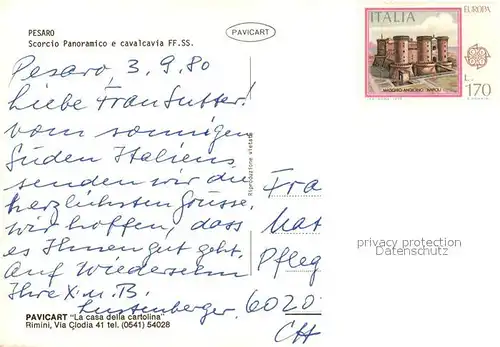 PESARO
Scorcio Panoramico e cavalcavia FF.SS.
PAVICART
ITALIA
EUROPA
MASCHIO ANGIOINO NAPOLI
L.
170
Pesaro, 3.9.80
Liebe Frau Sutter!
vom sonnigen
Süden Italiens
senden wir die
herzlichsten Grüsse.
wir hoffen, dass
es Ihnen gut geht.
Auf Wiedersehn
Ihre X. u. B.
Lustenberger.
Riproduzione vietata
Fra
Mat
Pfleg
6020
CH
privacy protection
Datenschutz
PAVICART "La casa della cartolina"
Rimini, Via Clodia 41 tel. (0541) 54028